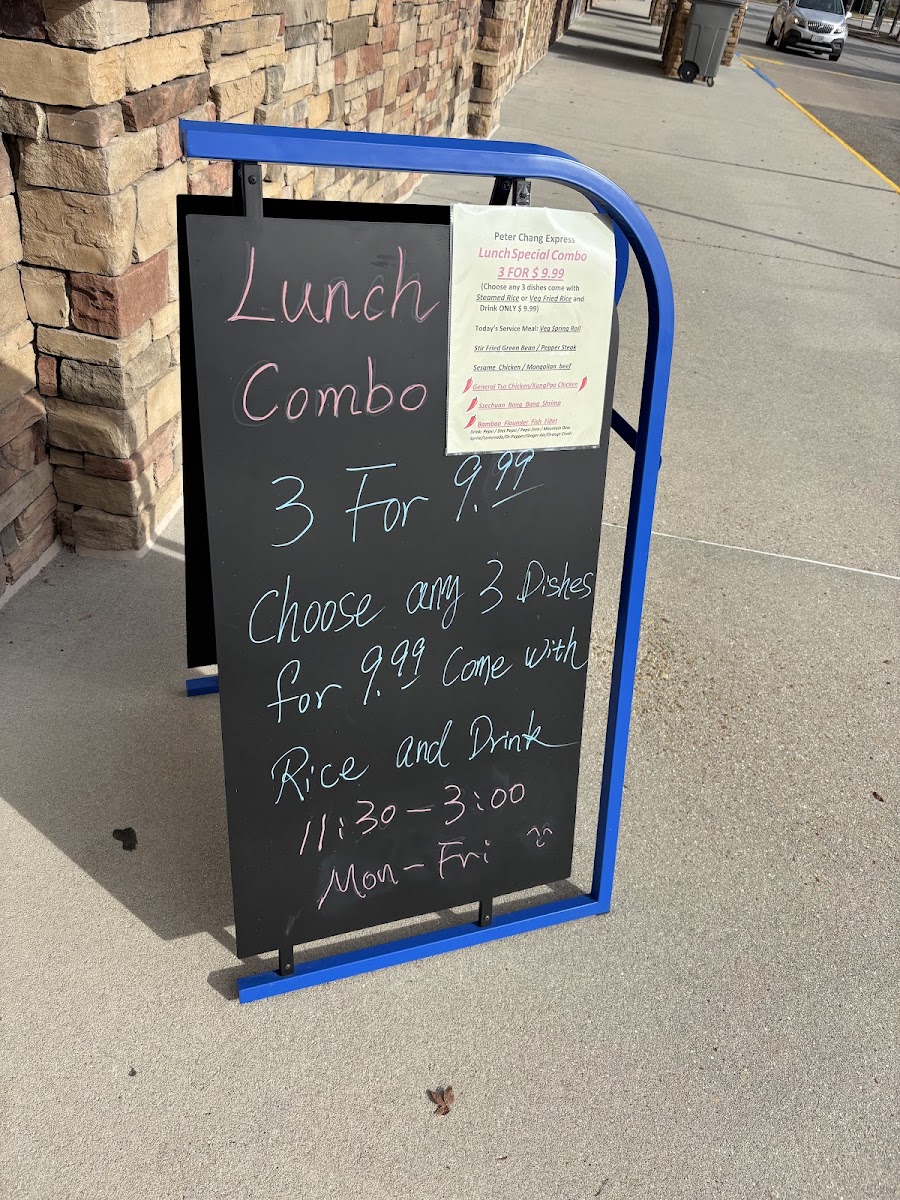 Lunch
Combo
3 For 9.99
Choose any 3 Dishes
for 9.99 Come with
Rice and Drink
11:30 - 3:00
Mon - Fri
Peter Chang Express
Lunch Special Combo
3 FOR $ 9.99
(Choose any 3 dishes come with
Steamed Rice or Veg Fried Rice and
Drink ONLY $ 9.99)
Today's Service Meal: Veg Spring Roll
Stir Fried Green Bean / Pepper Steak
Sesame Chicken / Mongolian beef
General Tso Chicken/KungPao Chicken
Szechuan Bang Bang Shrimp
Bamboo Flounder Fish Fillet
Drink: Pepsi / Diet Pepsi / Pepsi Zero / Mountain Dew
Sprite/Lemonade/Dr.Pepper/Ginger Ale/Orange Crush